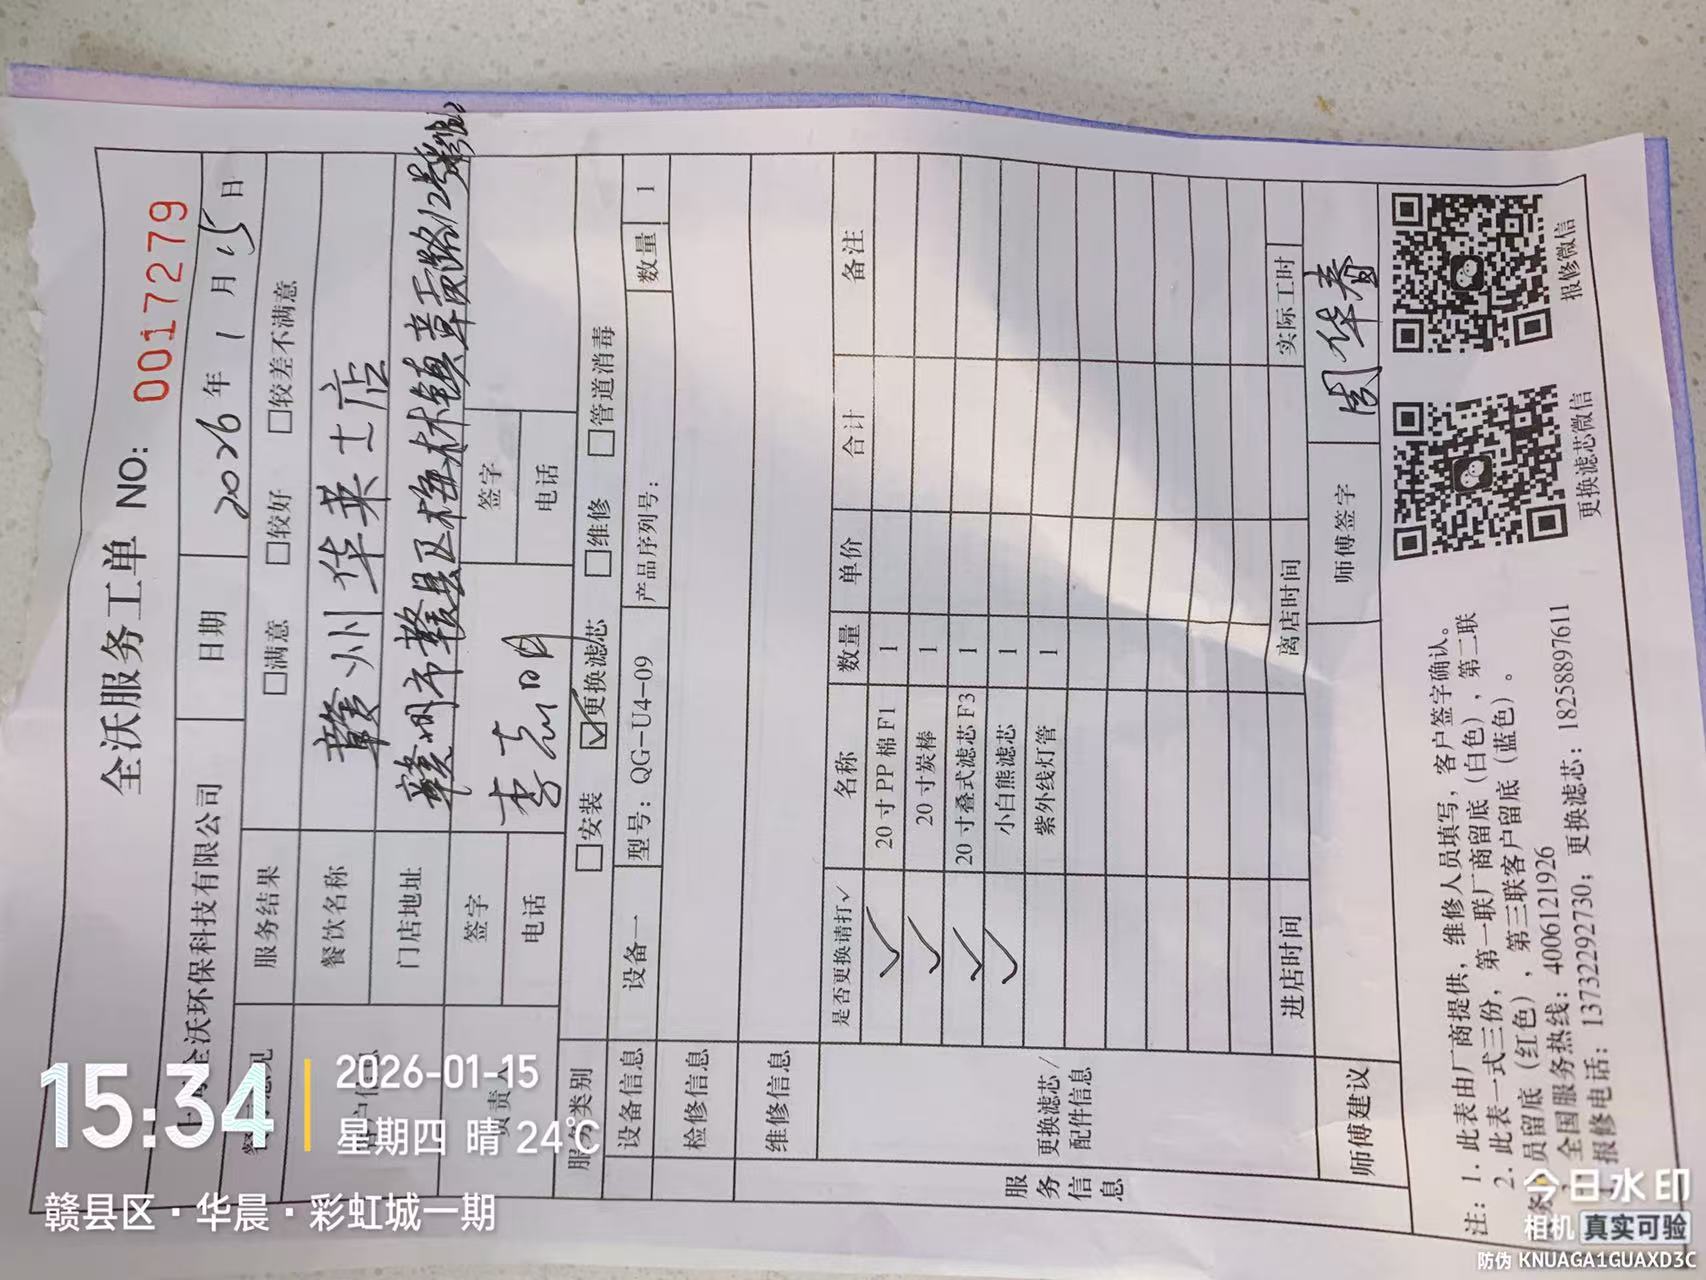 全沃服务工单 NO: 0017279
全沃环保科技有限公司 日期 2026年1月15日
服务结果 □满意 □较好 □较差不满意
餐饮名称 赣州华莱士店
门店地址 赣州市赣县区梅林镇章贡路12号
签字 签字
电话 电话
服务类别 □安装 ☑更换滤芯 □维修 □管道消毒
设备信息 设备一 型号：QG-U4-09 产品序列号： 数量 1
检修信息
维修信息
服务信息
更换滤芯/配件信息
是否更换请打✓ 名称 数量 单价 合计 备注
✓ 20寸PP棉F1 1
✓ 20寸炭棒 1
✓ 20寸叠式滤芯F3 1
✓ 小白熊滤芯 1
紫外线灯管 1
进店时间 离店时间 实际工时
师傅建议 师傅签字 周华春
注：1. 此表由厂商提供，维修人员填写，客户签字确认。
2. 此表一式三份，第一联厂商留底（白色），第二联
员留底（红色），第三联客户留底（蓝色）。
全国服务热线：4006121926
报修电话：13732292730；更换滤芯：18258897611
更换滤芯微信
报修微信
15:34
2026-01-15
星期四 晴 24℃
赣县区·华晨·彩虹城一期
今日水印
相机 真实可验
防伪 KNUAGA1GUAXD3C